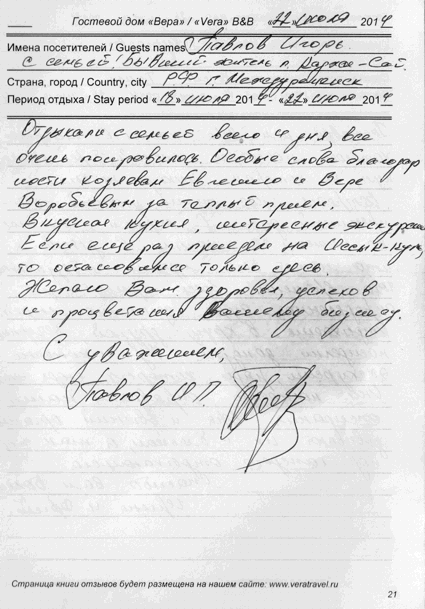 Гостевой дом «Вера» / «Vera» B&B «22» июля 2014
Имена посетителей / Guests names Павлов Игорь
с семьей! Бывший житель п. Каджи-Сай.
Страна, город / Country, city РФ г. Междуреченск
Период отдыха / Stay period «18» июля 2014 - «22» июля 2014
Отдыхали с семьей всего 4 дня, все
очень понравилось. Особые слова благодар
ности хозяевам Евгению и Вере
Воробьевым за теплый прием.
Вкусная кухня, интересные экскурсии
Если еще раз приедем на Иссык-Куль,
то остановимся только здесь.
Желаю Вам здоровья, успехов
и процветания Вашему бизнесу.
С уважением,
Павлов И.П.
Страница книги отзывов будет размещена на нашем сайте: www.veratravel.ru
21